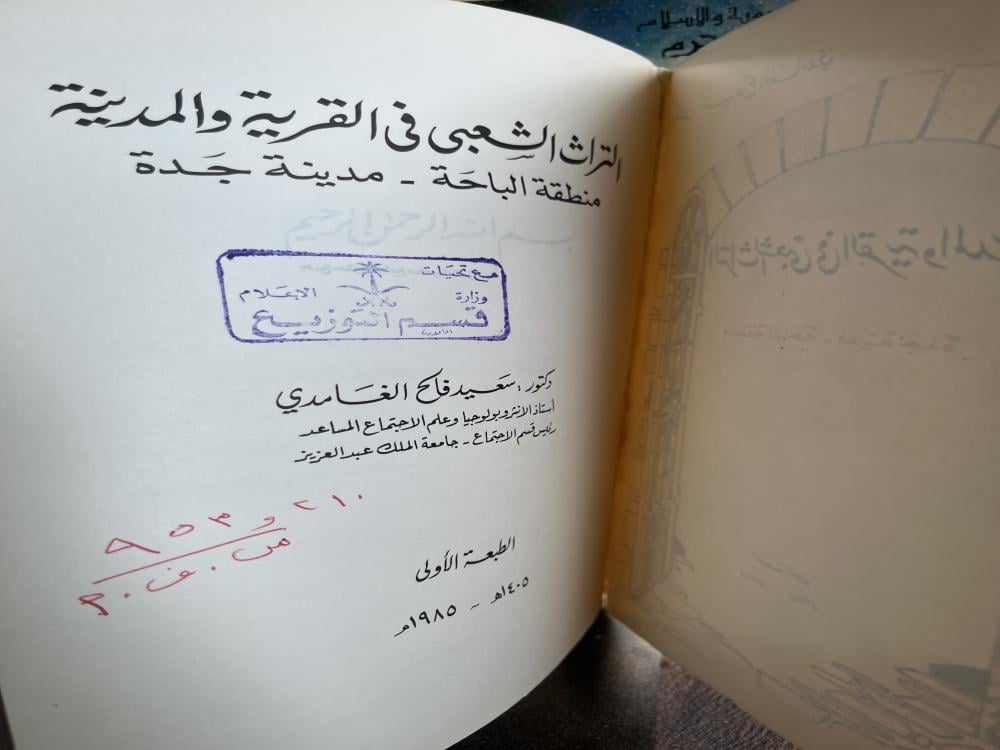 التراث الشعبى فى القرية والمدينة
منطقة الباحَة - مدينة جَدة
مع تحيات
وزارة الإعلام
قسم التوزيع
دكتور : سَعيد فالح الغَامدي
أستاذ الانثروبولوجيا وعلم الاجتماع المساعد
رئيس قسم الاجتماع - جامعة الملك عبد العزيز
٢١٠ و ٩٥٣
س . ف . م
الطبعة الأولى
١٤٠٥هـ - ١٩٨٥م